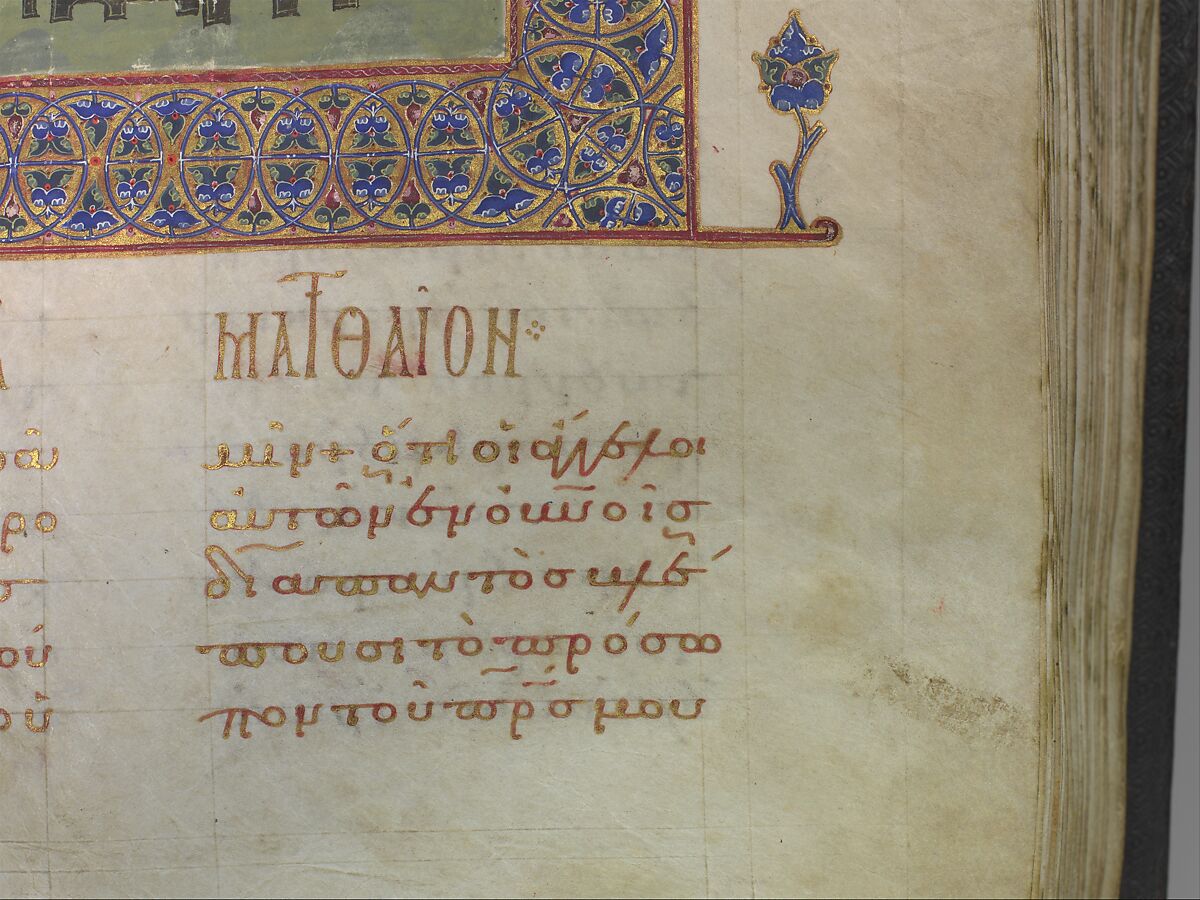 ΜΑΤΘΑῖΟΝ
μῖν + ὅτι οἱ ἄγγελοι
αὐτῶν ἐν οὐν̅οῖς
διαπαντὸς βλέ
πουσι τὸ πρόσω
πον τοῦ πρ̅ς μου